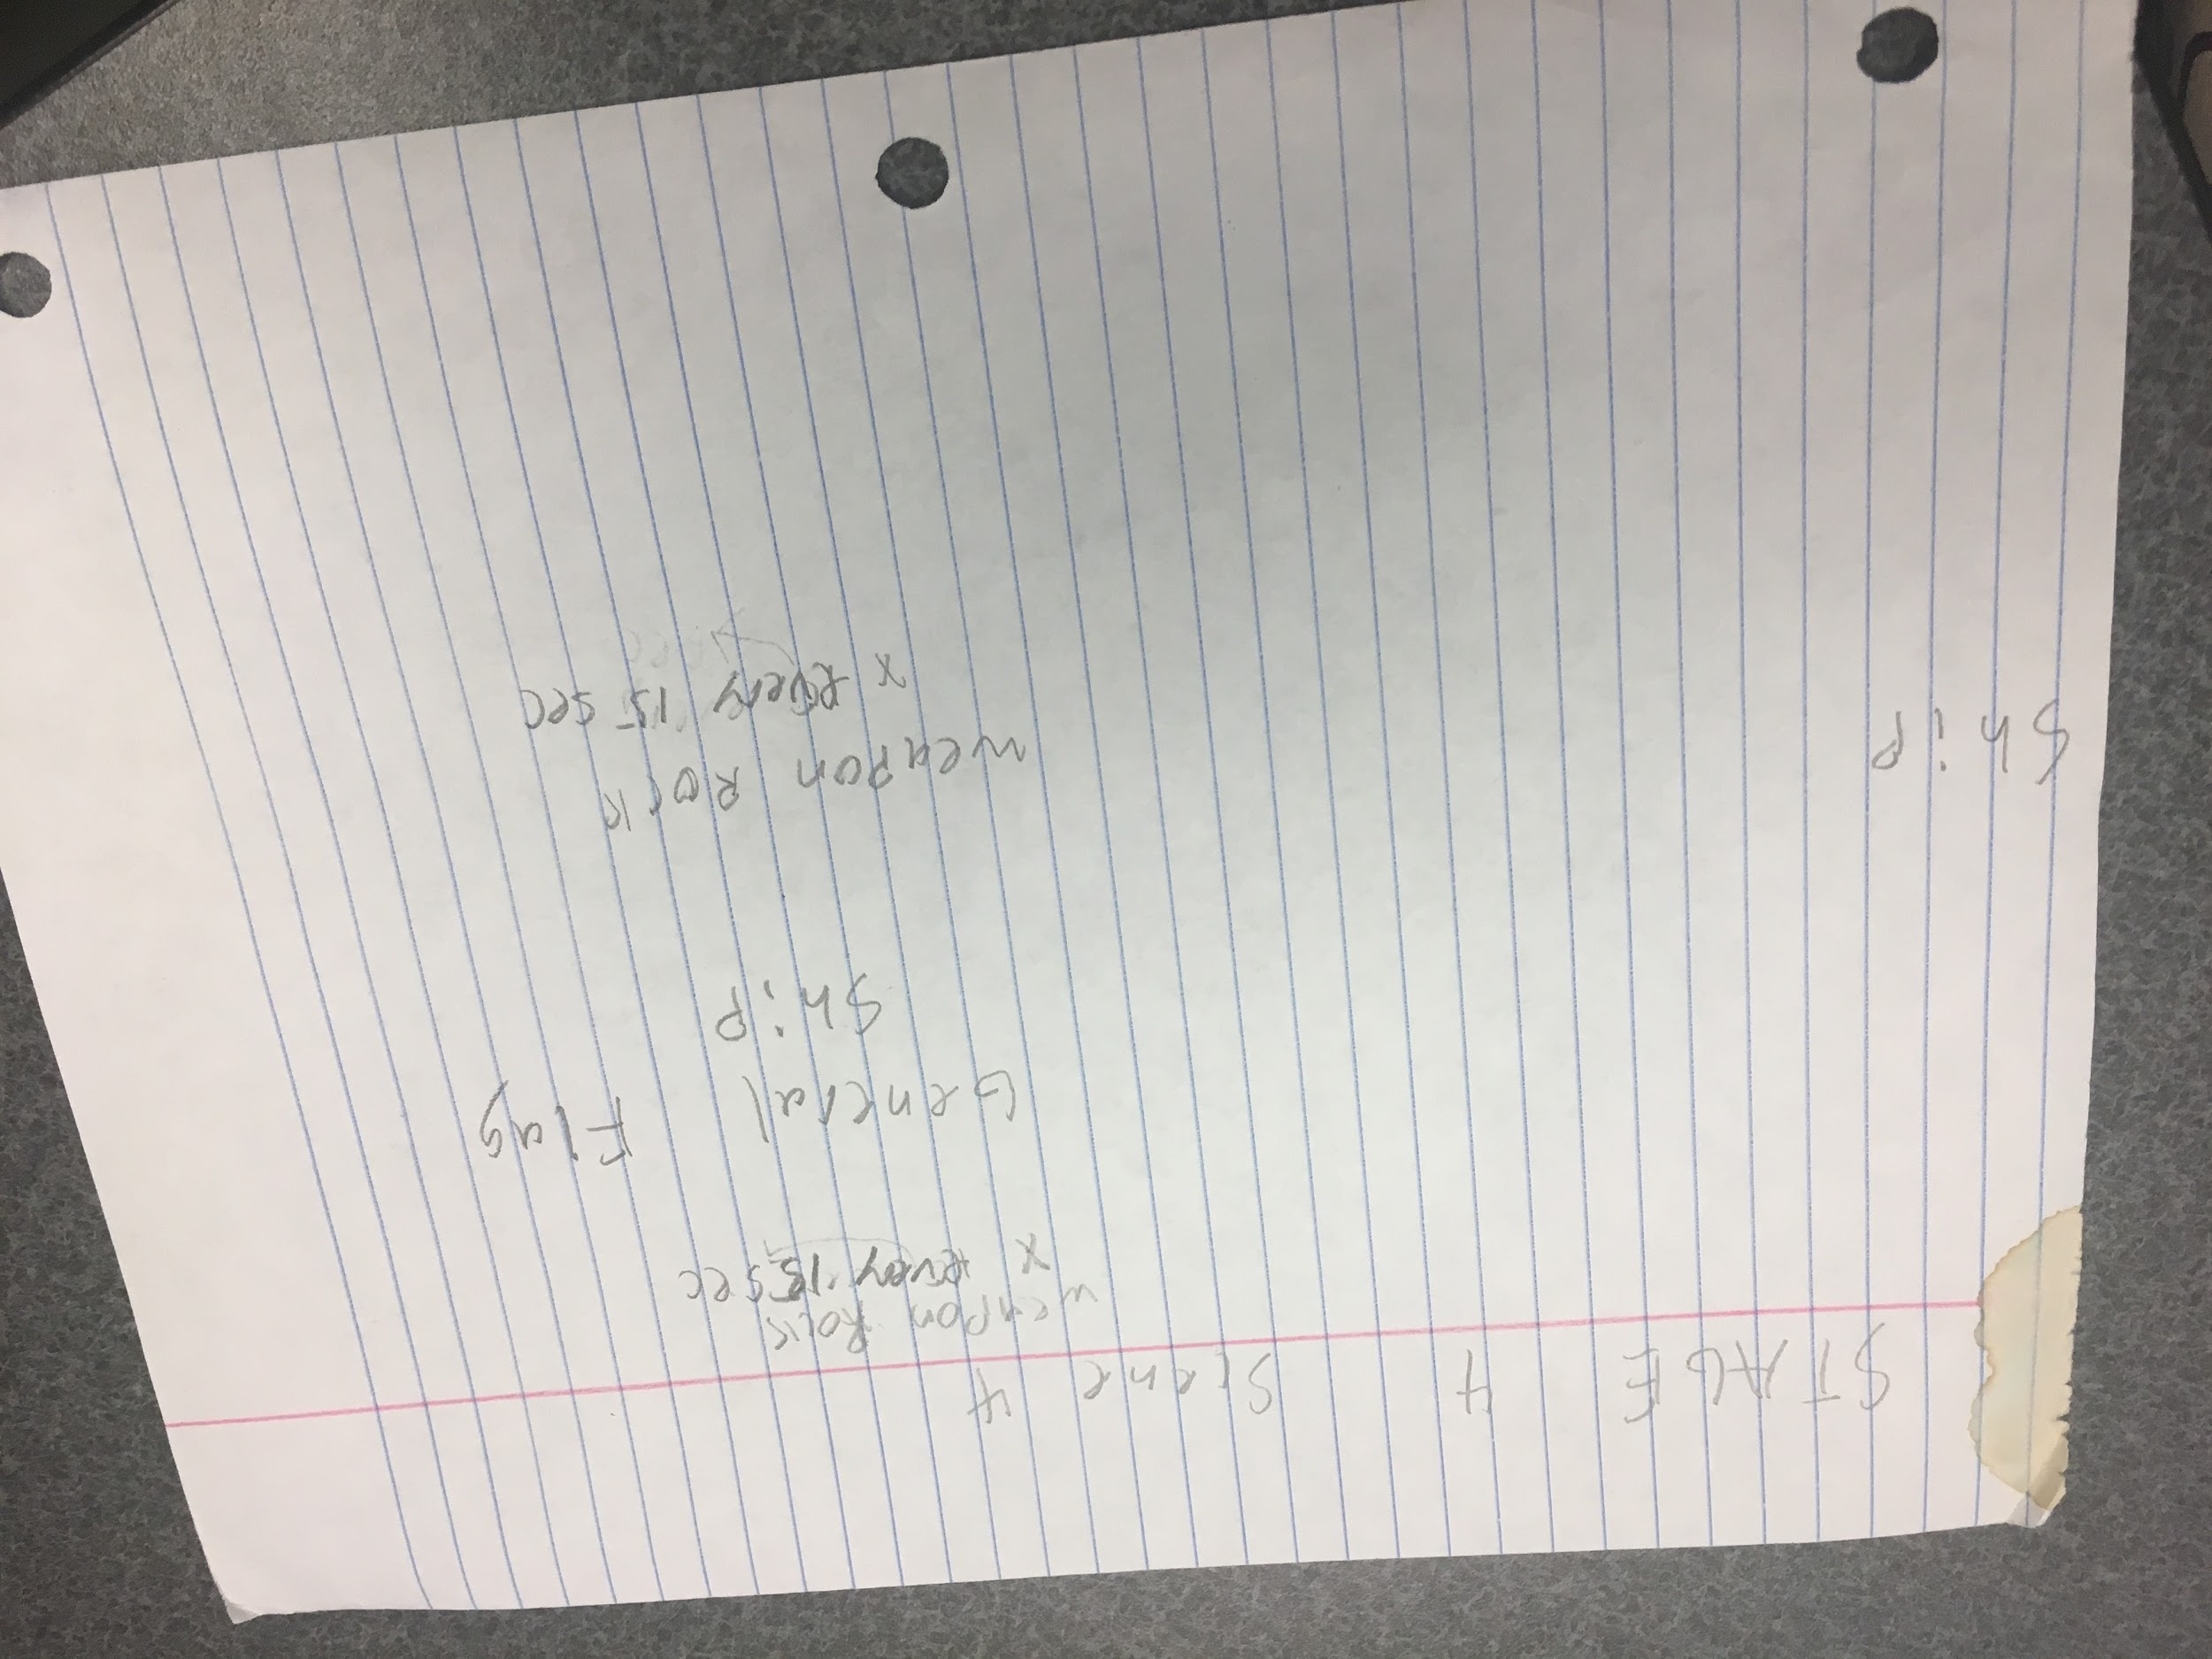 STAGE 4 Scene 4
weapon Rock
x Every 15 sec
General Flag
Ship
Ship
weapon Rock
x Every 15 sec